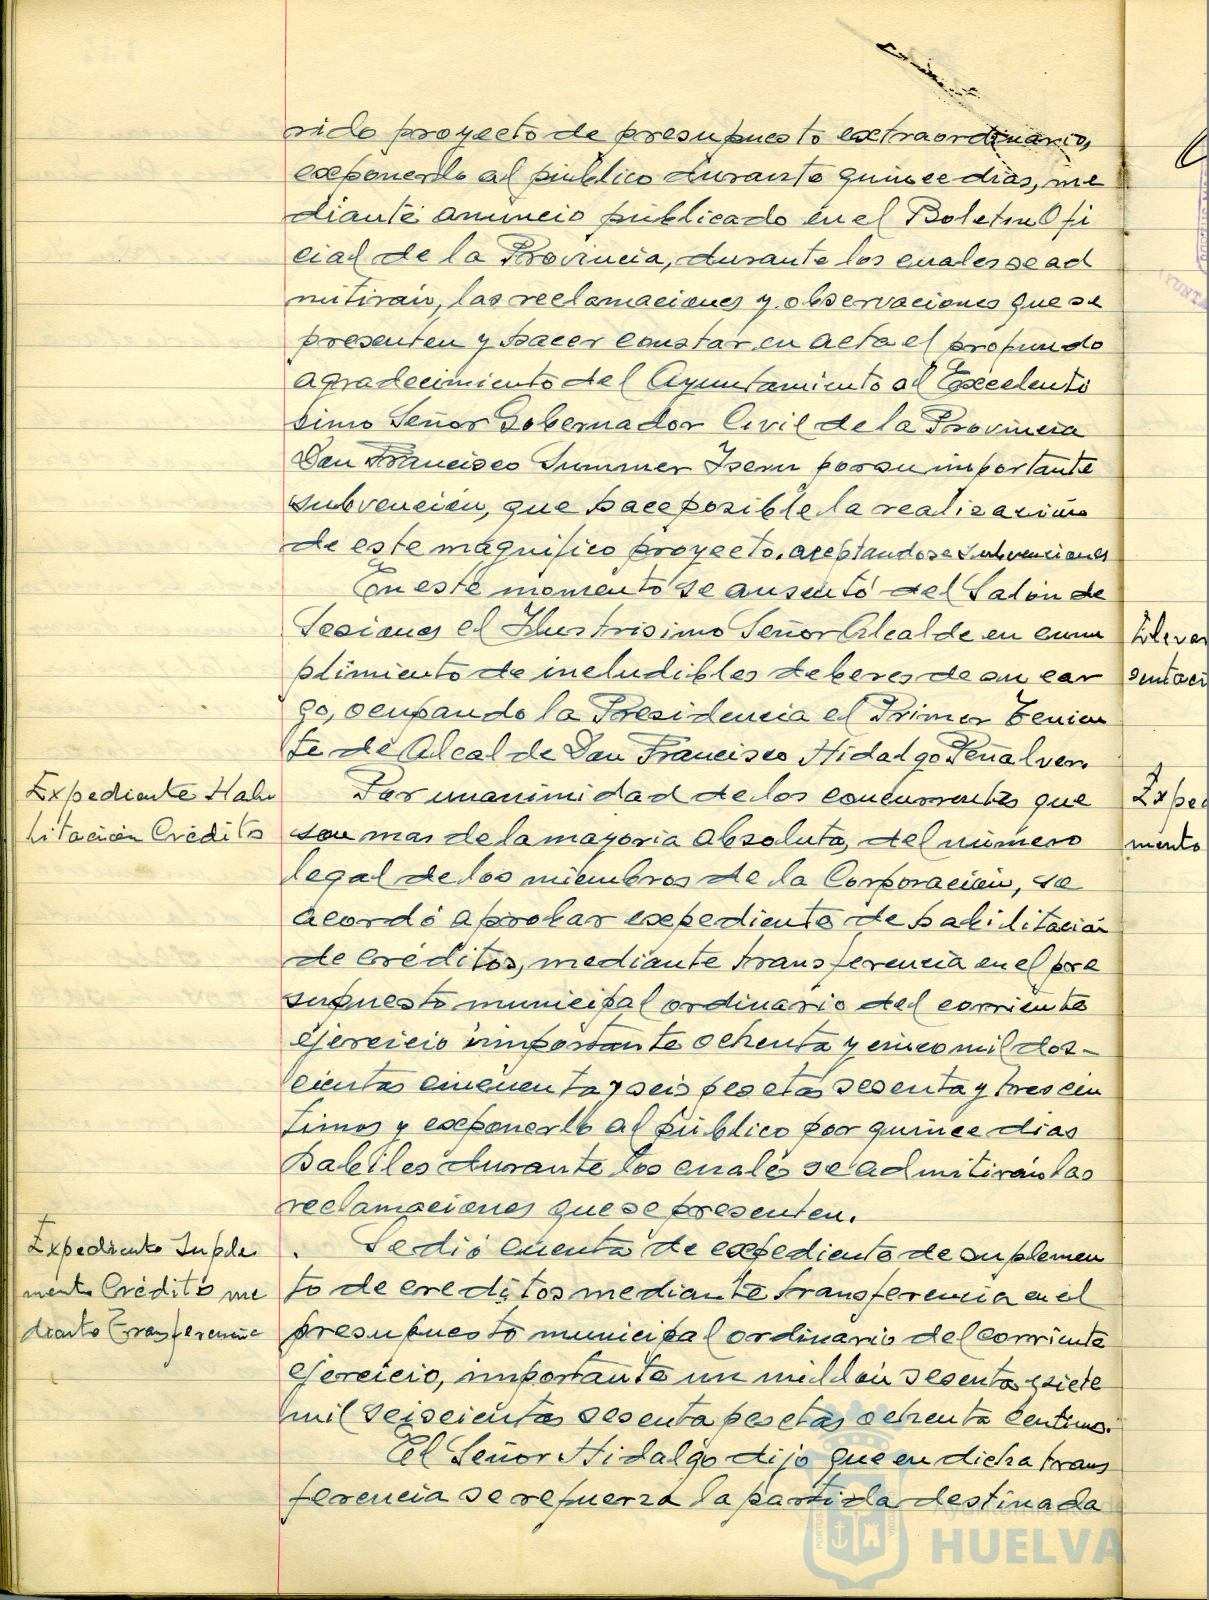 rido proyecto de presupuesto extraordinario,
exponerlo al público durante quince dias, me
diante anuncio publicado en el Boletin Ofi
cial de la Provincia, durante los cuales se ad
mitirán, las reclamaciones y observaciones que se
presenten y hacer constar en acta el profundo
agradecimiento del Ayuntamiento al Excelentí
simo Señor Gobernador Civil de la Provincia
Don Francisco Summer Isern por su importante
subvención, que hace posible la realización
de este magnífico proyecto. aceptandose subvenciones
En este momento se ausentó del Salón de
Sesiones el Ilustrisimo Señor Alcalde en cum
plimiento de ineludibles deberes de su car
go, ocupando la Presidencia el Primer Tenien
te de Alcalde Don Francisco Hidalgo Peñalver.
Expediente Habi
litación Crédito
Por unanimidad de los concurrentes que
son mas de la mayoria absoluta, del número
legal de los miembros de la Corporación, se
acordó aprobar expediente de habilitación
de créditos, mediante transferencia en el pre
supuesto municipal ordinario del corriente
ejercicio importante ochenta y cinco mil dos-
cientas cincuenta y seis pesetas sesenta y tres cén
timos y exponerlo al público por quince dias
habiles durante los cuales se admitirán las
reclamaciones que se presenten.
Expediente Suple
mento Créditos me
diante Transferencia
Se dió cuenta de expediente de suplemen
to de creditos mediante transferencia en el
presupuesto municipal ordinario del corriente
ejercicio, importante un millón sesenta y siete
mil seiscientas sesenta pesetas ochenta centimos.
El Señor Hidalgo dijo que en dicha trans
ferencia se refuerza la partida destinada
Elevar
sentaci
Exped
mento
Ayuntamiento de
HUELVA